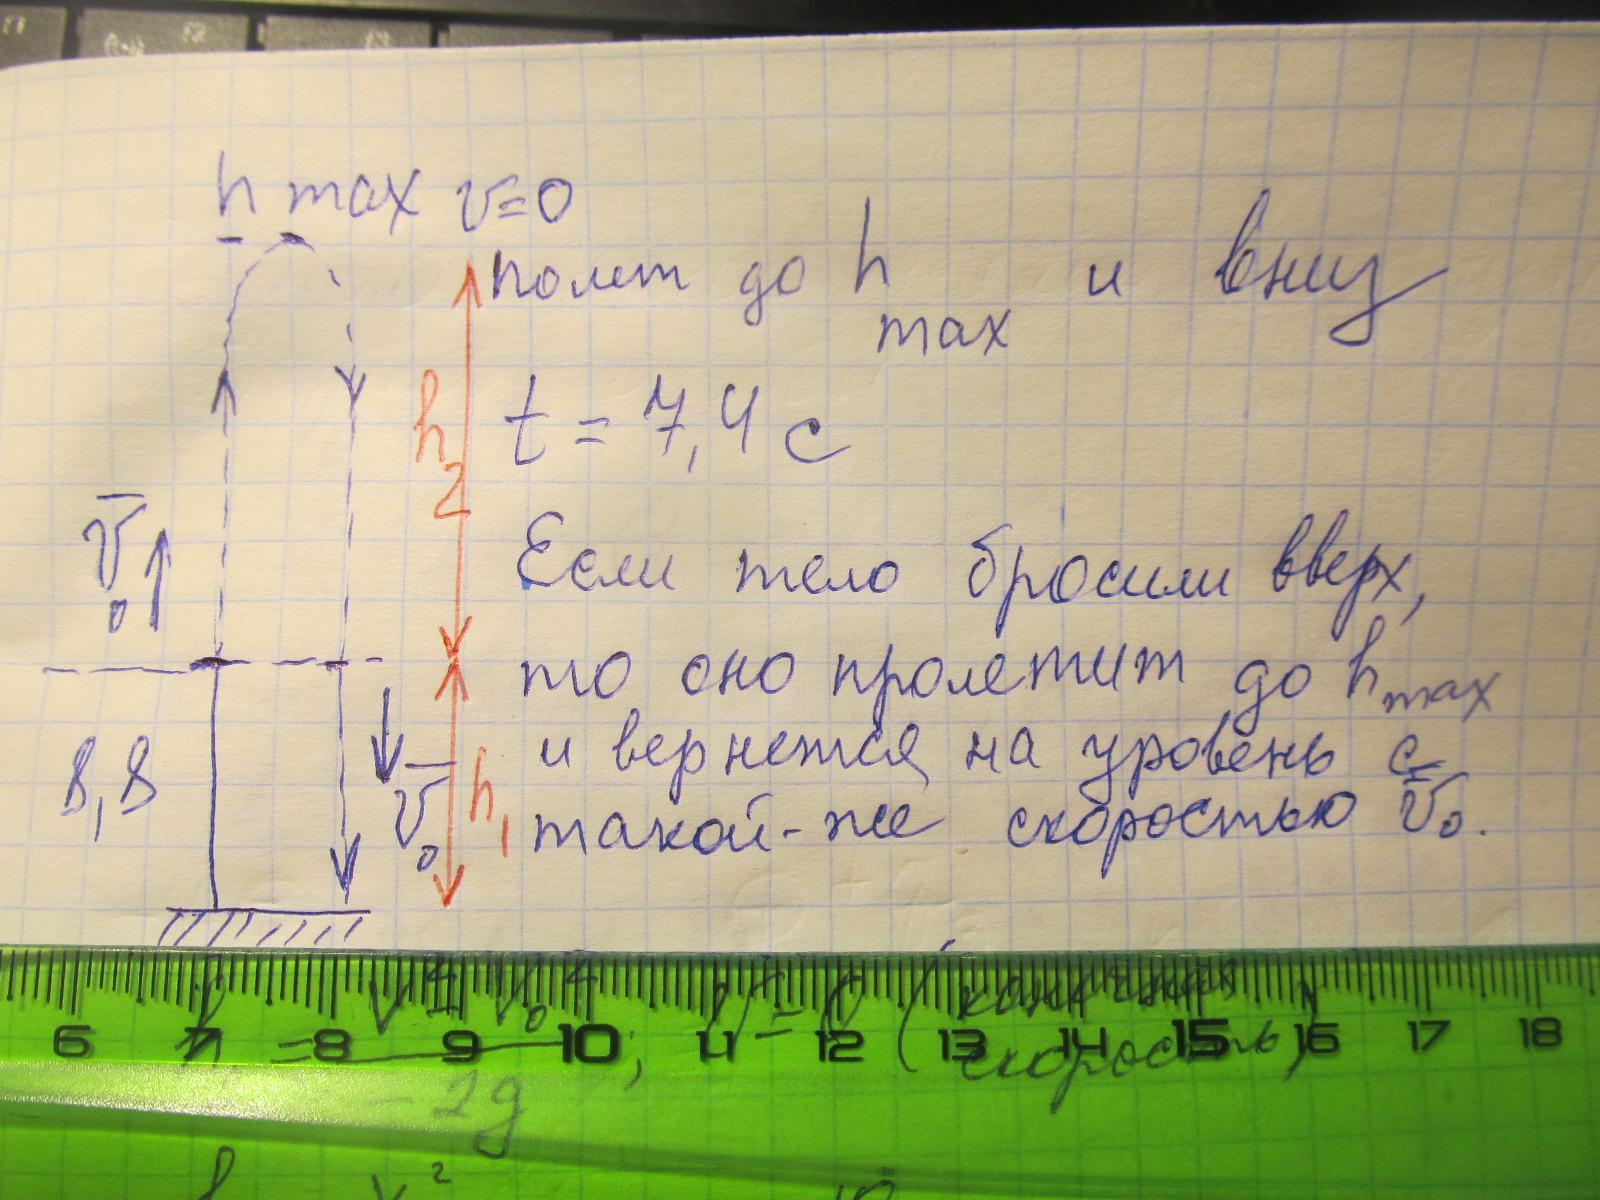 h max v=0
полет до h max и вниз
h₂
t = 7,4 с
v̅₀
Если тело бросили вверх,
то оно пролетит до hmax
и вернется на уровень с
8,8
v̅₀
h₁
такой-же скоростью v̅₀.
6 7 8 9 10 11 12 13 14 15 16 17 18
h = v² - v₀² ; v = 0 (конечная
- 2g
скорость)